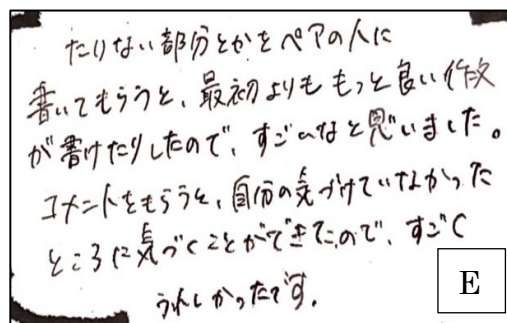 たりない部分とかをペアの人に
書いてもらうと、最初よりももっと良い作文
が書けたりしたので、すごいなと思いました。
コメントをもらうと、自分の気づけていなかった
ところに気づくことができたので、すごく
うれしかったです。
E